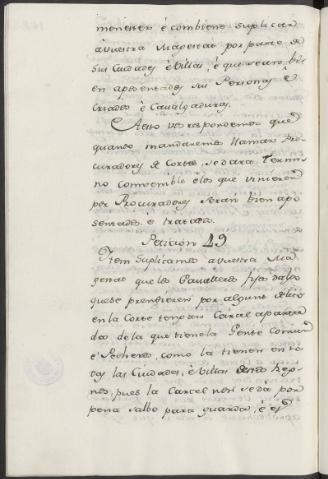 menester è combiene suplicar
à vuestra Magestad por parte de
sus Ciudades è Villas, è que sean bi-
en aposentados sus Personas è
Criados è Cavalgaduras.
A esto vos respondemos que
quando mandaremos llamar Pro-
curadores de Cortes, se dara termi-
no combenible è los que vinieren
por Procuradores seran bien apo-
sentados, è tratados.
Peticion 49
Item suplicamos a vuestra Ma-
gestad que los Cavalleros fijosdalgo
que se prendieren por algunt delito
en la Corte tengan Carcel apartada
dos de la que tiene la Gente comun
è Pecheros, como la tienen en to-
das las Ciudades, è Villas destos Rey-
nos, pues la Carcel non se da por
pena salbo para guarda, è es